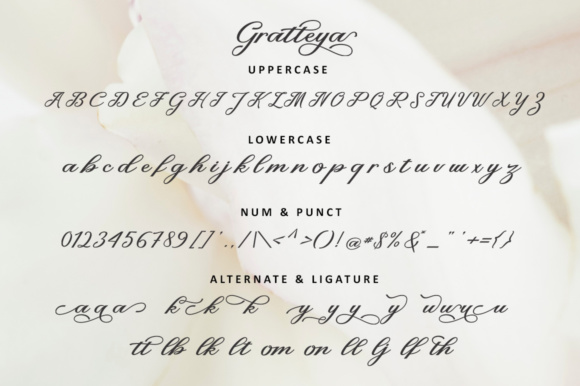 Gratteya
UPPERCASE
A B C D E F G H I J K L M N O P Q R S T U V W X Y Z
LOWERCASE
a b c d e f g h i j k l m n o p q r s t u v w x y z
NUM & PUNCT
0123456789[]'.,/|\<^>()!@#$%&*_"'+={}
ALTERNATE & LIGATURE
a a a k k k y y y y w u y u
tt lb lk lt om on ll lj lf th